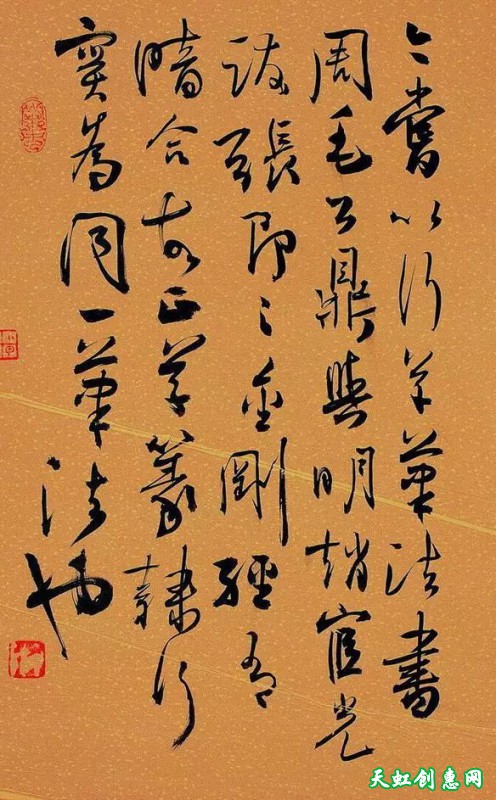 嘗以行草筆法書
周毛公鼎與明趙宧光
跋張即之金剛經有
暗合正草篆隸行
實為同一筆法也
天虹创惠网